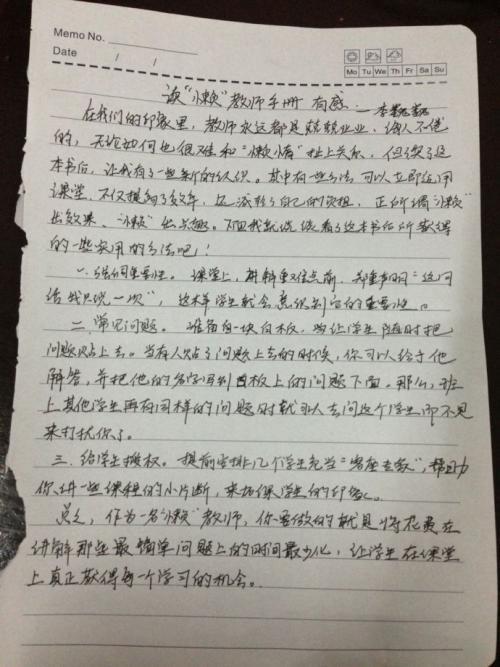 Memo No.
Date / /
Mo Tu We Th Fr Sa Su
读“小懒”教师手册 有感 —
在我们的印象里，教师永远都是兢兢业业，诲人不倦
的，无论如何也很难和“懒惰”扯上关系，但读了这
本书后，让我有了一些新的认识。其中有一些方法可以立即运用
课堂，不仅提高了效率，还减轻了自己的负担，正所谓“小懒”
出效果，“小懒”出乐趣。下面我就说说看了这本书后所获得
的一些实用的方法吧！
一、强调重要性。课堂上，讲解重难点前，郑重声明“这句
话我只说一次”，这样学生就会意识到它的重要性。
二、常见问题。准备白一块白板，以让学生随时把
问题贴上去。当有人贴了问题上去的时候，你可以给予他
解答，并把他的名字写到白板上的问题下面。那么，班
上其他学生再有同样的问题时就可以去问这个学生而不是
来打扰你了。
三、给学生授权。提前安排几个学生充当“客座教授”，帮助
你讲一些课程的小片断，来加深学生的印象。
总之，作为一名“小懒”教师，你要做的就是将花费在
讲解那些最简单问题上的时间最少化，让学生在课堂
上真正获得每一个学习的机会。